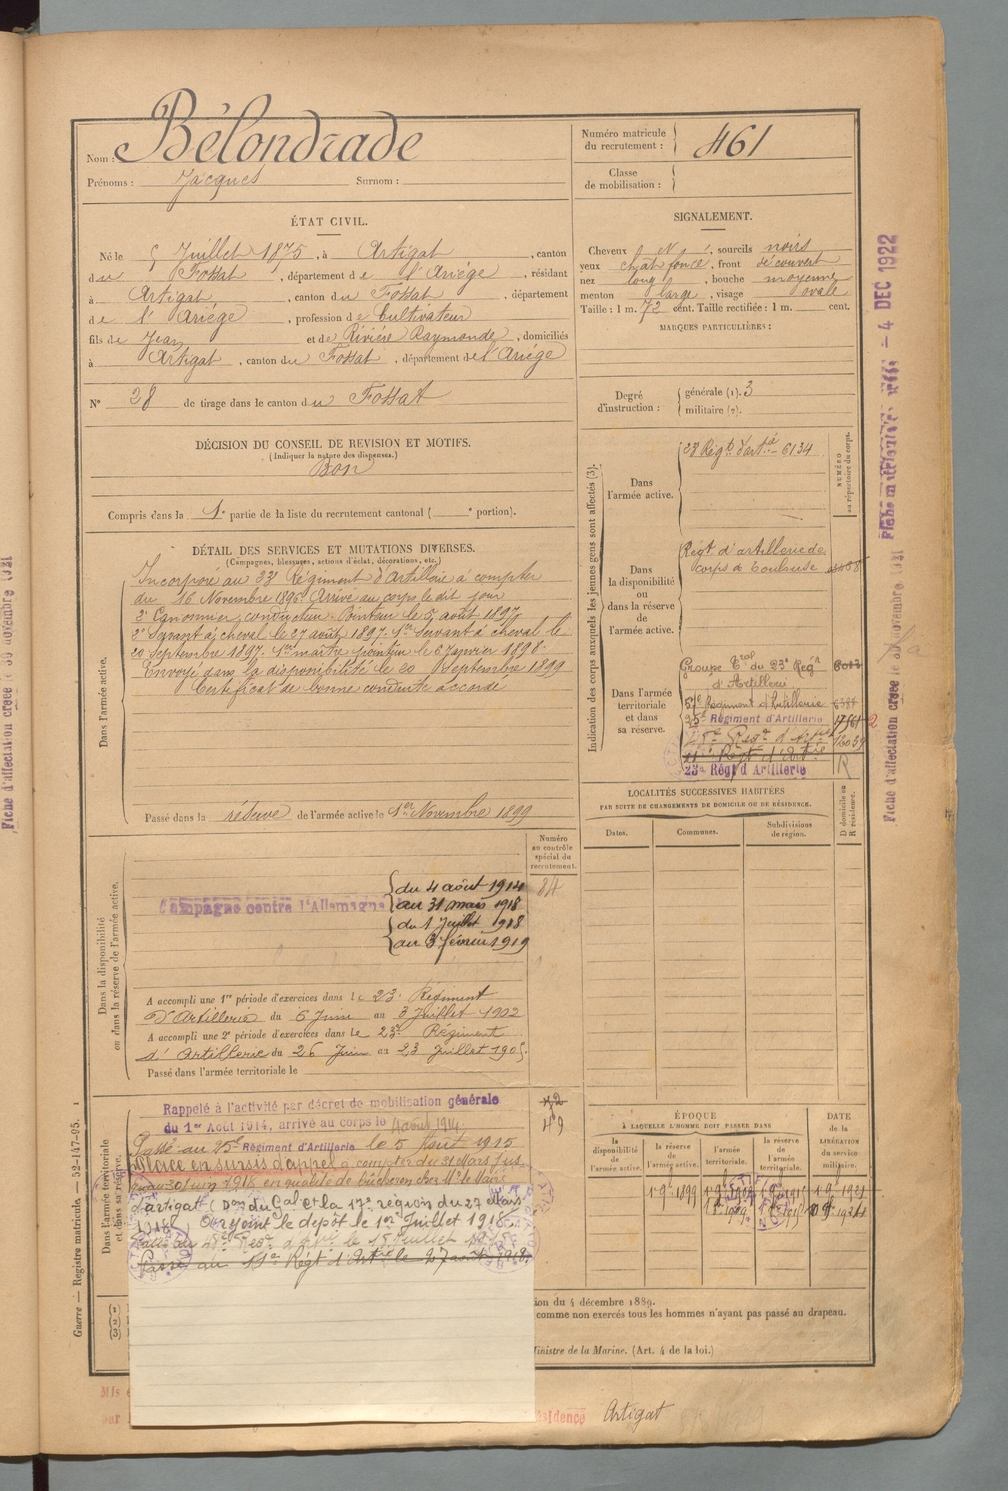 Nom : Bélondrade
Prénoms : Jacques Surnom :
Numéro matricule du recrutement : 461
Classe de mobilisation :
ÉTAT CIVIL.
Né le 5 Juillet 1875, à Artigat, canton
du Fossat, département de l'Ariège, résidant
à Artigat, canton du Fossat, département
de l'Ariège, profession de Cultivateur
fils de Jean et de Rivière Raymonde, domiciliés
à Artigat, canton du Fossat, département de l'Ariége
N° 28 de tirage dans le canton du Fossat
SIGNALEMENT.
Cheveux N, sourcils noirs
yeux chat foncé, front découvert
nez long, bouche moyenne
menton large, visage ovale
Taille : 1 m. 72 cent. Taille rectifiée : 1 m. cent.
MARQUES PARTICULIÈRES :
Degré d'instruction : générale (1). 3
militaire (2).
DÉCISION DU CONSEIL DE REVISION ET MOTIFS.
(Indiquer la nature des dispenses.)
Bon
Compris dans la 1e partie de la liste du recrutement cantonal ( e portion).
DÉTAIL DES SERVICES ET MUTATIONS DIVERSES.
(Campagnes, blessures, actions d'éclat, décorations, etc.)
Dans l'armée active.
Incorporé au 23e Régiment d'Artillerie à compter
du 16 Novembre 1896. Arrivé au corps le dit jour
2e Canonnier conducteur. Pointeur le 5 août 1897
2e Servant à cheval le 27 août 1897. 1er Servant à cheval le
20 Septembre 1897. 1er maître pointeur le 6 Janvier 1898.
Envoyé dans la disponibilité le 20 Septembre 1899
Certificat de bonne conduite accordé
Passé dans la réserve de l'armée active le 1er Novembre 1899
Indication des corps auxquels les jeunes gens sont affectés (3).
NUMÉRO au répertoire du corps.
Dans l'armée active.
23e Régt d'artie 6134
Dans la disponibilité ou dans la réserve de l'armée active.
Régt d'artillerie de
corps de Toulouse
Dans l'armée territoriale et dans sa réserve.
Groupe Trial du 23e Régt
d'Artillerie
57e Régiment d'Artillerie
25e Régiment d'Artillerie
23e Régt d'Artillerie R
LOCALITÉS SUCCESSIVES HABITÉES
PAR SUITE DE CHANGEMENTS DE DOMICILE OU DE RÉSIDENCE.
Dates. Communes. Subdivisions de région. D domicile ou R résidence.
Dans la disponibilité ou dans la réserve de l'armée active.
Numéro au contrôle spécial du recrutement.
Campagne contre l'Allemagne
du 4 août 1914
au 31 mars 1918
du 1 Juillet 1918
au 3 février 1919
A accompli une 1re période d'exercices dans le 23e Régiment
d'Artillerie du 6 Juin au 3 Juillet 1902
A accompli une 2e période d'exercices dans le 23e Régiment
d'Artillerie du 26 Juin au 23 Juillet 1905.
Passé dans l'armée territoriale le
Dans l'armée territoriale et dans sa réserve.
Rappelé à l'activité par décret de mobilisation générale
du 1er Août 1914, arrivé au corps le 4 août 1914.
49
Passé au 25e Régiment d'Artillerie le 5 Août 1915
Placé en sursis d'appel à compter du 31 Mars jus
qu'au 30 Juin 1918 en qualité de bûcheron chez Mr le Maire
d'artigat (Don du Gal Ct la 17e région du 27 Mars
1918) A rejoint le dépôt le 1er Juillet 1918
Passé au 11e Régt d'Artie le 27 août 1918
ÉPOQUE
À LAQUELLE L'HOMME DOIT PASSER DANS
la disponibilité de l'armée active. la réserve de l'armée active. l'armée territoriale. la réserve de l'armée territoriale.
DATE DE LA LIBÉRATION DU service militaire.
1 9e 1899
Guerre — Registre matricule. — 52-147-95.
ion du 4 décembre 1889.
comme non exercés tous les hommes n'ayant pas passé au drapeau.
Ministre de la Marine. (Art. 4 de la loi.)
Mis
par
résidence Artigat
Fiche d'affectation créée le 30 novembre 1921
4 DEC 1922
Fiche d'affectation créée le 30 novembre 1921